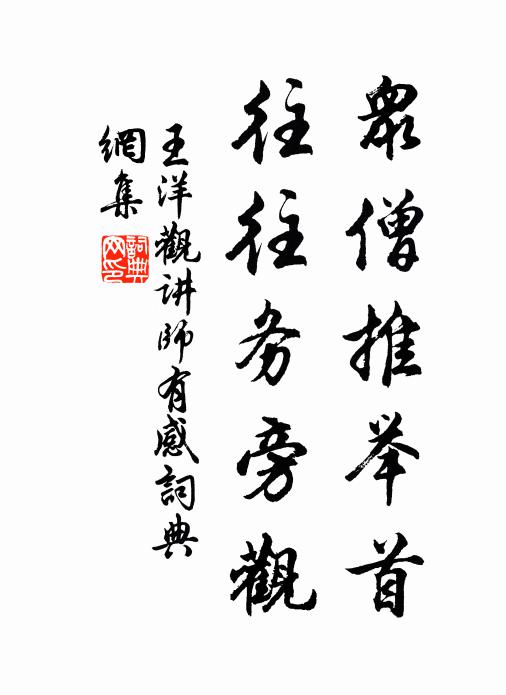 眾僧推举首
往往务旁觀
王洋觀讲師有感詞典
網集
詞典
网印